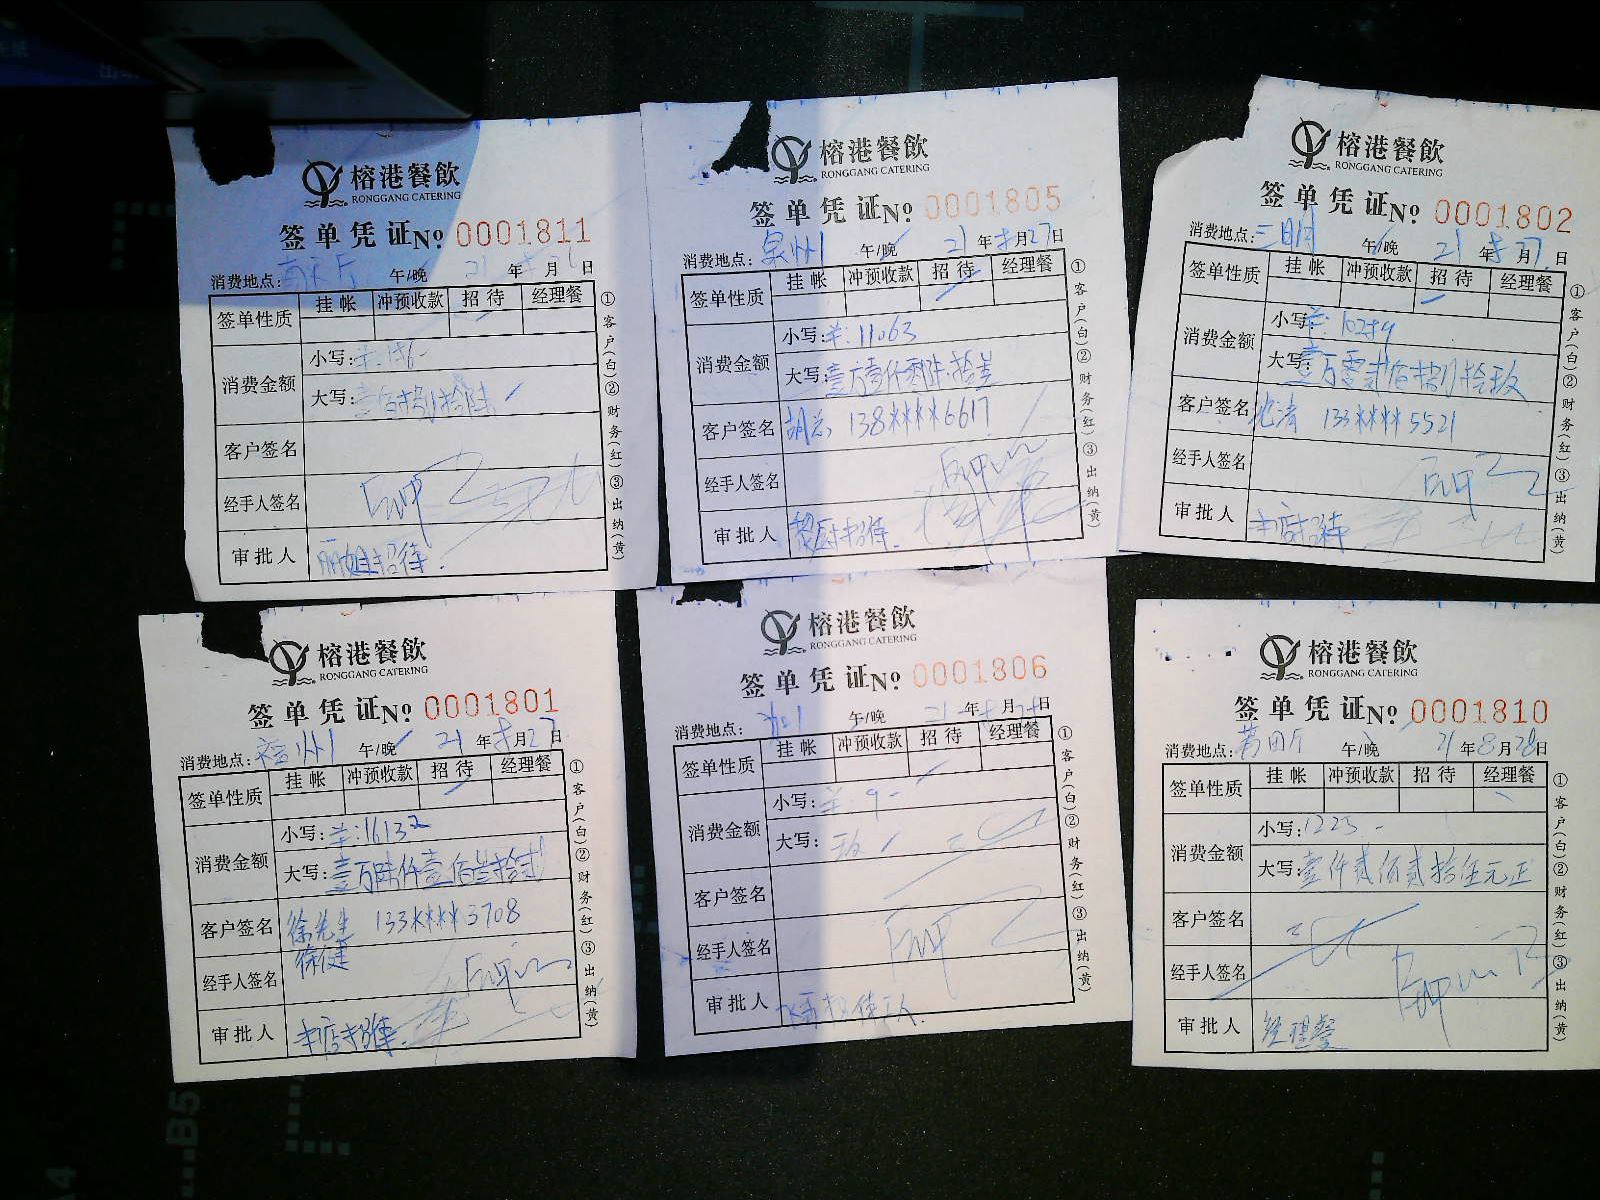 榕港餐飲
RONGGANG CATERING
签单凭证No 0001811
消费地点: 午/晚 21年 月 日
签单性质 挂帐 冲预收款 招待 经理餐
消费金额 小写:
大写:壹佰捌拾陆
客户签名
经手人签名
审批人 丽姐招待.
①客户(白)②财务(红)③出纳(黄)
榕港餐飲
RONGGANG CATERING
签单凭证No 0001805
消费地点:泉州 午/晚 21年8月27日
签单性质 挂帐 冲预收款 招待 经理餐
消费金额 小写:羊:11063
大写:壹万壹仟零陆拾叁
客户签名 胡总 138****6617
经手人签名
审批人 招待.
①客户(白)②财务(红)③出纳(黄)
榕港餐飲
RONGGANG CATERING
签单凭证No 0001802
消费地点:三明 午/晚 21年8月27日
签单性质 挂帐 冲预收款 招待 经理餐
消费金额 小写:羊:10289
大写:壹万零贰佰捌拾玖
客户签名 133****5521
经手人签名
审批人 本店招待
①客户(白)②财务(红)③出纳(黄)
榕港餐飲
RONGGANG CATERING
签单凭证No 0001801
消费地点:福州 午/晚 21年8月27日
签单性质 挂帐 冲预收款 招待 经理餐
消费金额 小写:羊:16132
大写:壹万陆仟壹佰叁拾贰
客户签名 徐先生 133****3708
徐健
经手人签名
审批人 本店招待.
①客户(白)②财务(红)③出纳(黄)
榕港餐飲
RONGGANG CATERING
签单凭证No 0001806
消费地点: 午/晚 21年 月 日
签单性质 挂帐 冲预收款 招待 经理餐
消费金额 小写:羊:9-
大写:玖
客户签名
经手人签名
审批人
①客户(白)②财务(红)③出纳(黄)
榕港餐飲
RONGGANG CATERING
签单凭证No 0001810
消费地点:莆田厅 午/晚 21年8月28日
签单性质 挂帐 冲预收款 招待 经理餐
消费金额 小写:1225-
大写:壹仟贰佰贰拾伍元正
客户签名
经手人签名
审批人 经理餐
①客户(白)②财务(红)③出纳(黄)
B5
A4